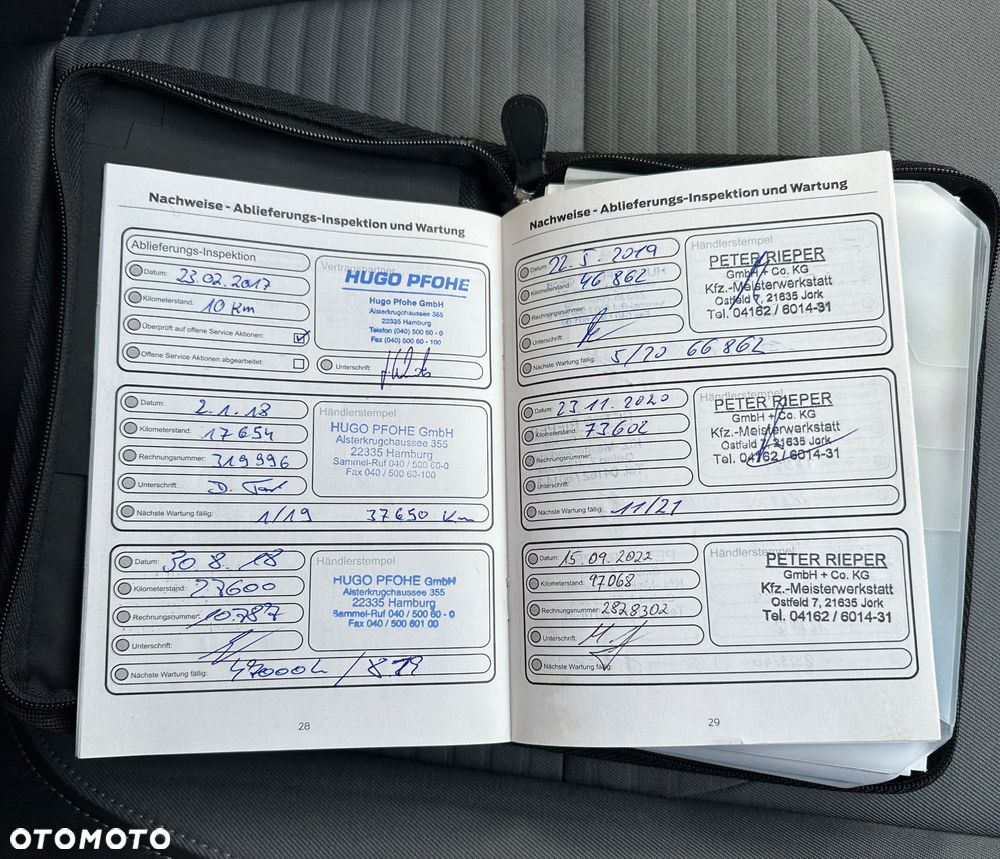 Nachweise - Ablieferungs-Inspektion und Wartung
Ablieferungs-Inspektion
Datum: 23.02.2017
Kilometerstand: 10 Km
Überprüft auf offene Service Aktionen:
Offene Service Aktionen abgearbeitet:
Vertragspartner
HUGO PFOHE
Hugo Pfohe GmbH
Alsterkrugchaussee 355
22335 Hamburg
Telefon (040) 500 60 - 0
Fax (040) 500 60 - 100
Unterschrift:
Datum: 2.1.18
Kilometerstand: 17654
Rechnungsnummer: 319996
Unterschrift:
Nächste Wartung fällig: 1/19 37650 Km
Händlerstempel
HUGO PFOHE GmbH
Alsterkrugchaussee 355
22335 Hamburg
Sammel-Ruf 040 / 500 60-0
Fax 040 / 500 60-100
Datum: 30.8.18
Kilometerstand:
Rechnungsnummer: 10.787
Unterschrift:
Nächste Wartung fällig: / 8.19
Händlerstempel
HUGO PFOHE GmbH
Alsterkrugchaussee 355
22335 Hamburg
Sammel-Ruf 040 / 500 60 - 0
Fax 040 / 500 601 00
28
Nachweise - Ablieferungs-Inspektion und Wartung
Datum: 22.5.2019
Kilometerstand: 46862
Rechnungsnummer:
Unterschrift:
Nächste Wartung fällig: 5/20 66862
Händlerstempel
PETER RIEPER
GmbH + Co. KG
Kfz.-Meisterwerkstatt
Ostfeld 7, 21635 Jork
Tel. 04162 / 6014-31
Datum: 23.11.2020
Kilometerstand: 73602
Rechnungsnummer:
Unterschrift:
Nächste Wartung fällig: 11/21
Händlerstempel
PETER RIEPER
GmbH + Co. KG
Kfz.-Meisterwerkstatt
Ostfeld 7, 21635 Jork
Tel. 04162 / 6014-31
Datum: 15.09.2022
Kilometerstand: 97068
Rechnungsnummer: 2828302
Unterschrift:
Nächste Wartung fällig:
Händlerstempel
PETER RIEPER
GmbH + Co. KG
Kfz.-Meisterwerkstatt
Ostfeld 7, 21635 Jork
Tel. 04162 / 6014-31
29
OTOMOTO